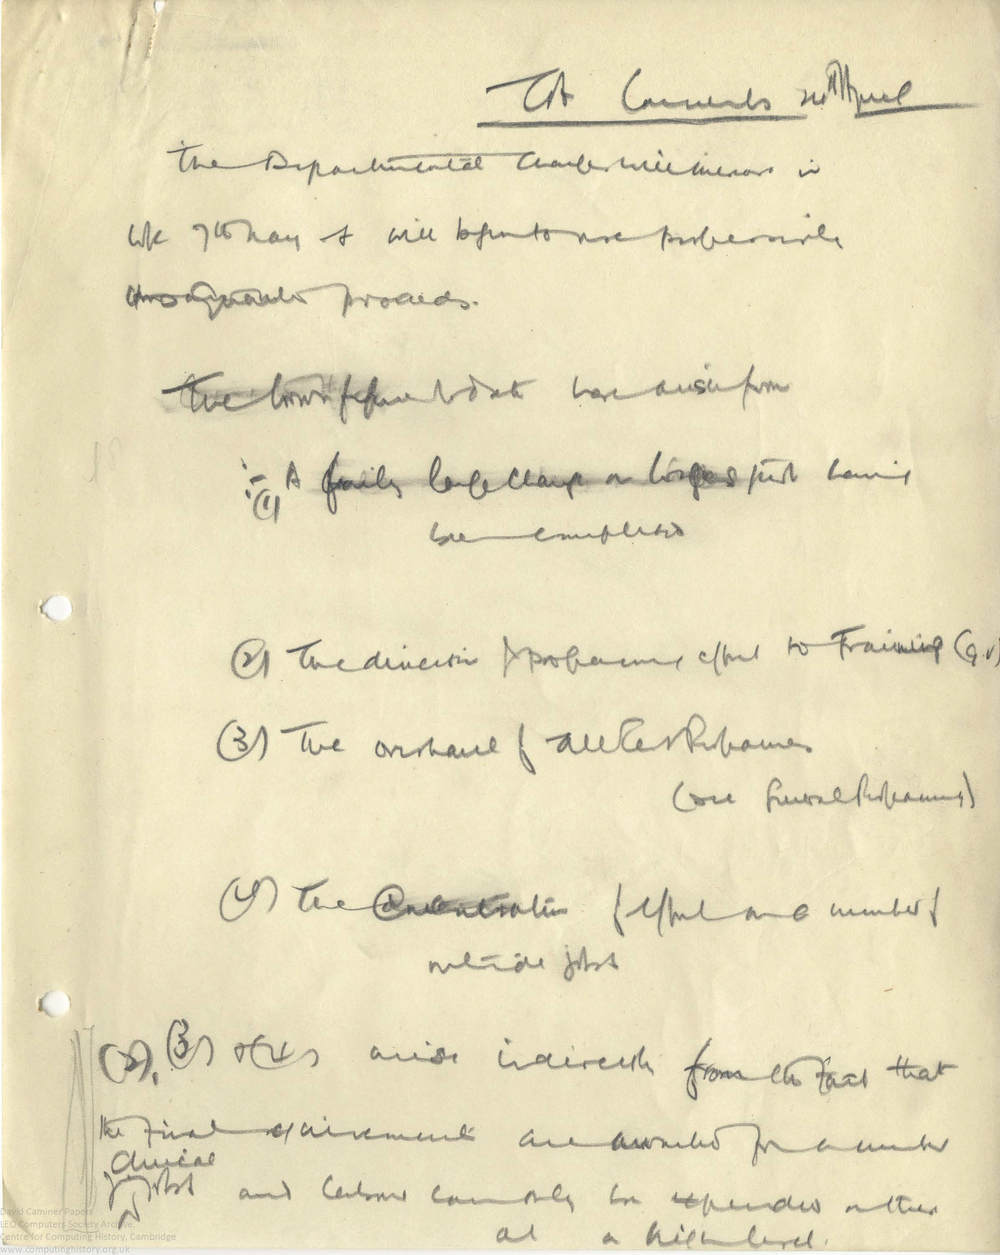 Comments 24th April
The Departmental in
wk 7th May & will begin to use
proceeds.
The to date have arisen from
:- (1) A fairly large change on just having
been completed
(2) The direction of programme effort to Training (q.v)
(3) The overhaul of all Test Programmes
(see General Programmes)
(4) The concentration of effort on a number of
outside jobs
(2), (3) & (4) arise indirectly from the fact that
the final requirements are awaited for a number
of clerical jobs and labour can only be expended on them
at a high level.
David Caminer Papers
LEO Computers Society Archive.
Centre for Computing History, Cambridge
www.computinghistory.org.uk